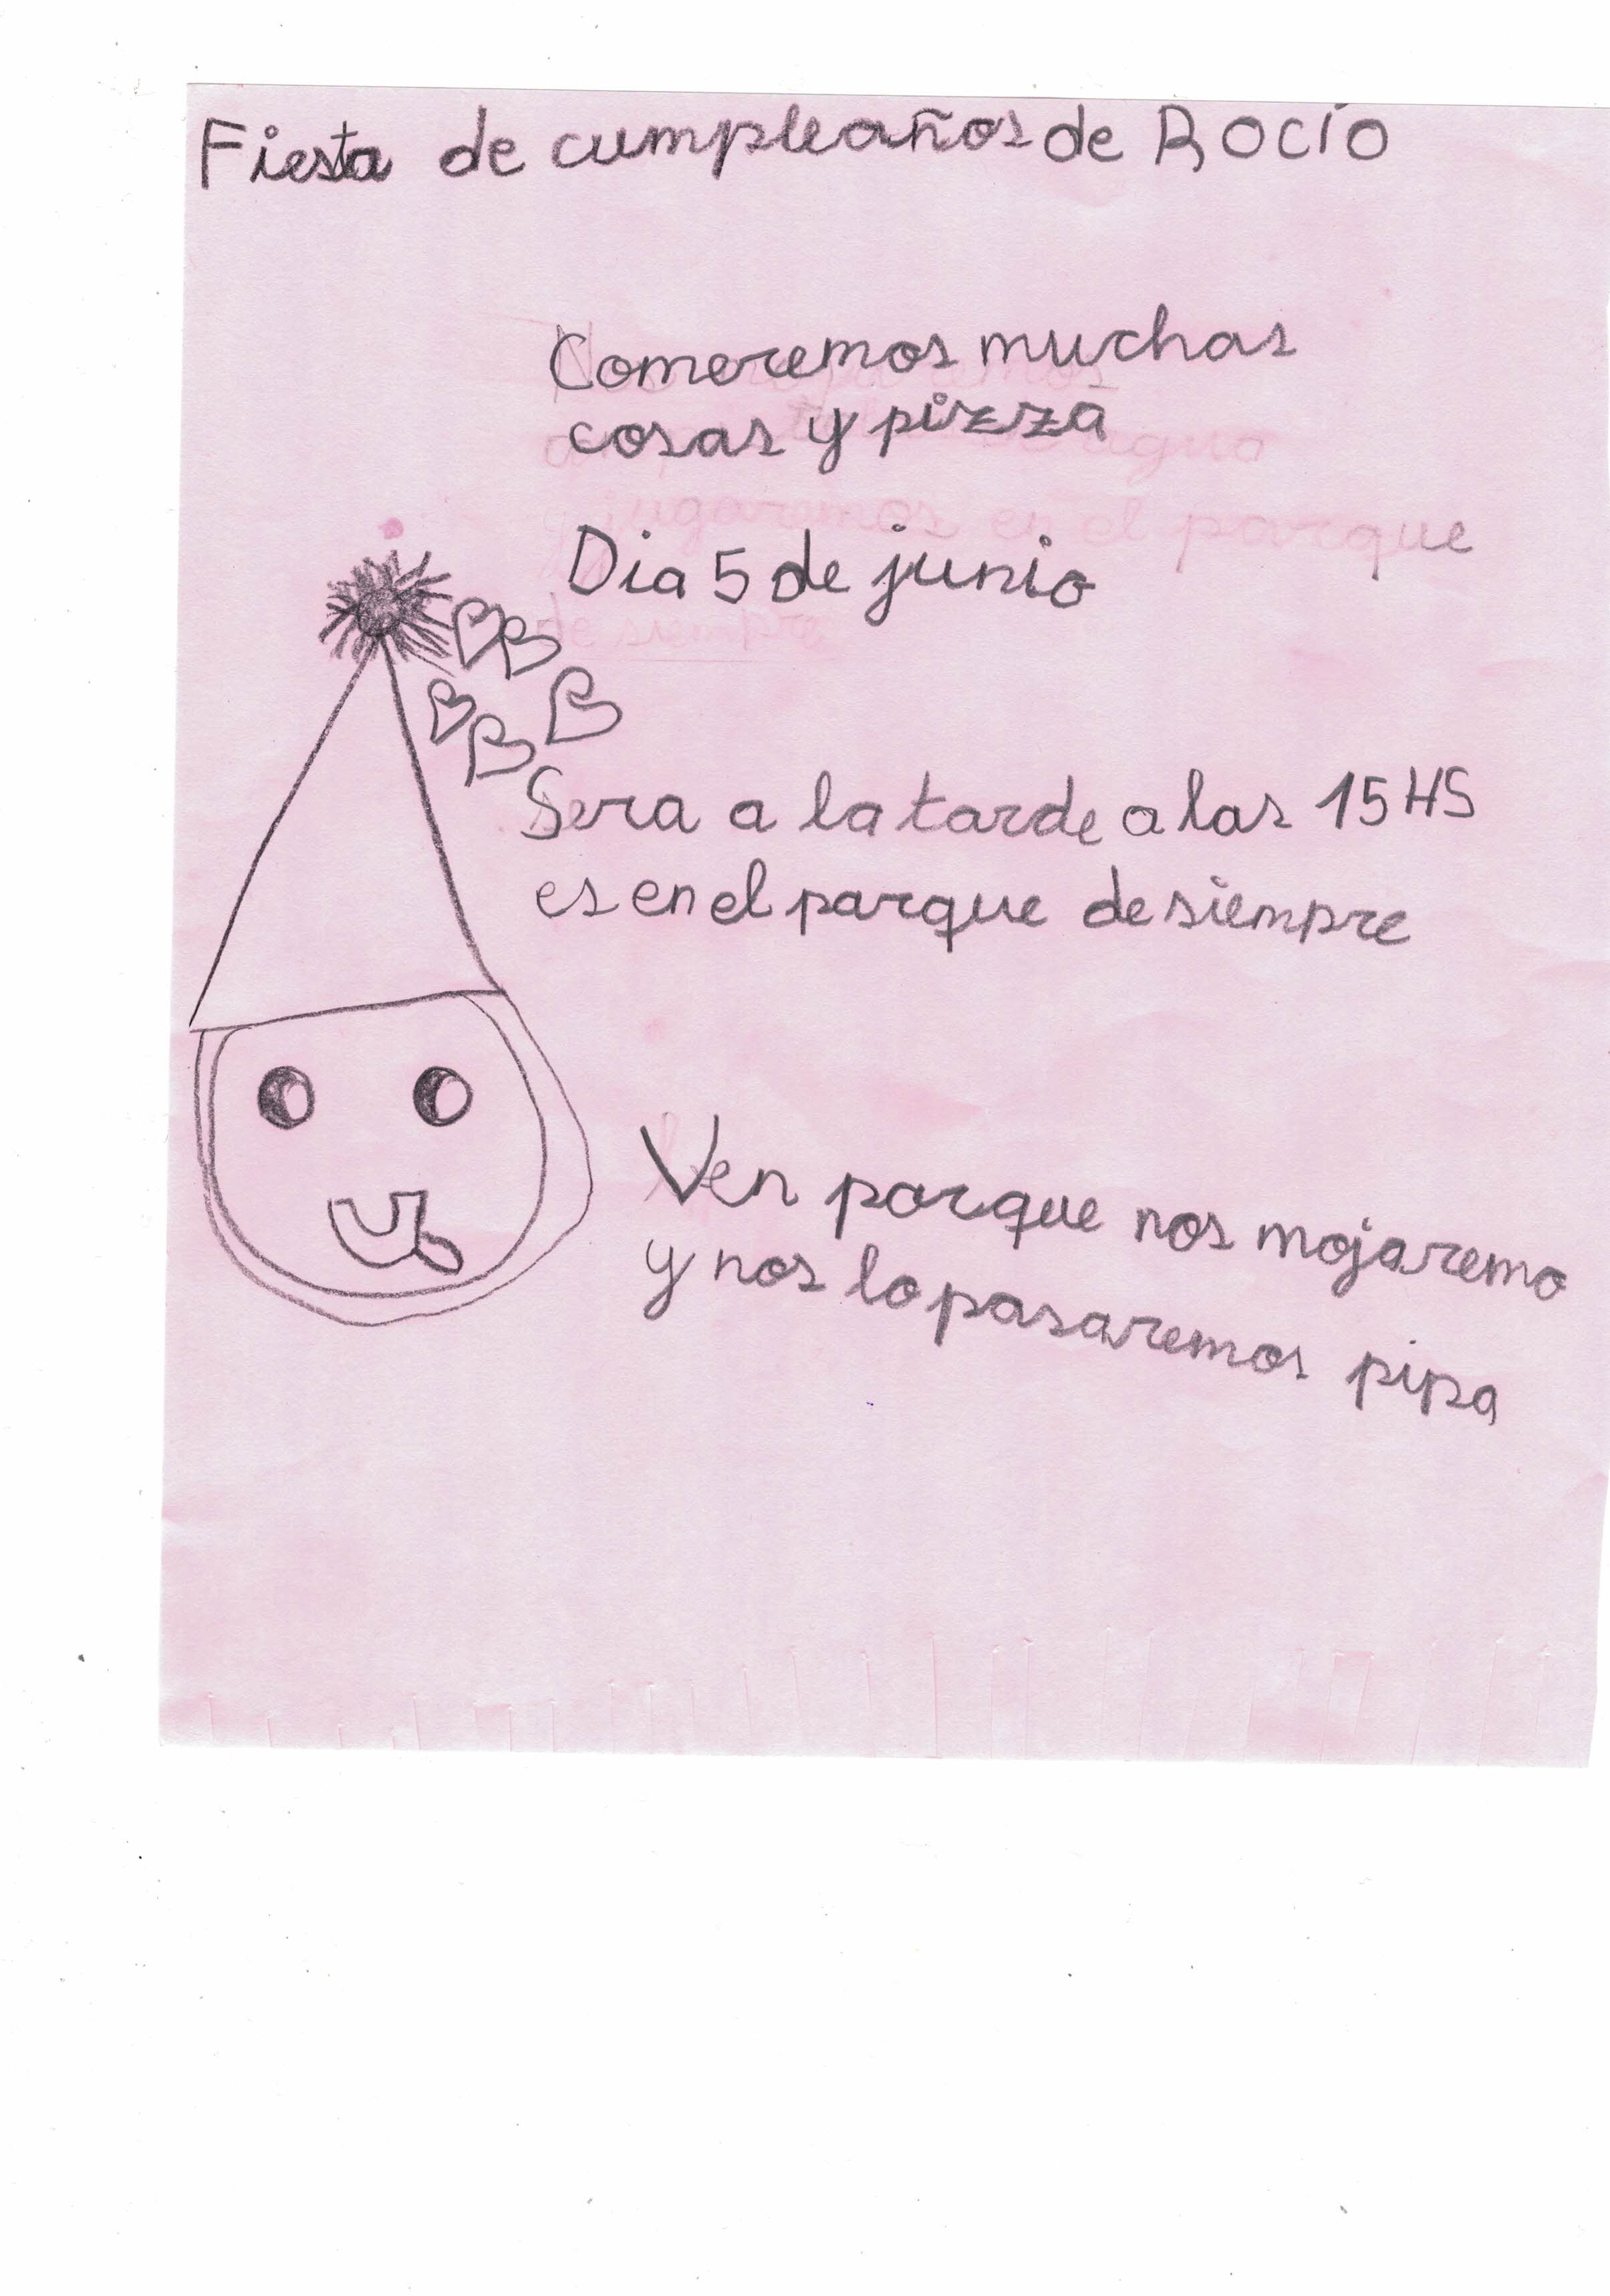 Fiesta de cumpleaños de Rocío
Comeremos muchas
cosas y pizza
agua
y jugaremos en el parque
Dia 5 de junio
de siempre
Sera a la tarde a las 15 HS
es en el parque de siempre
Ven porque nos mojaremo
y nos lo pasaremos pipa